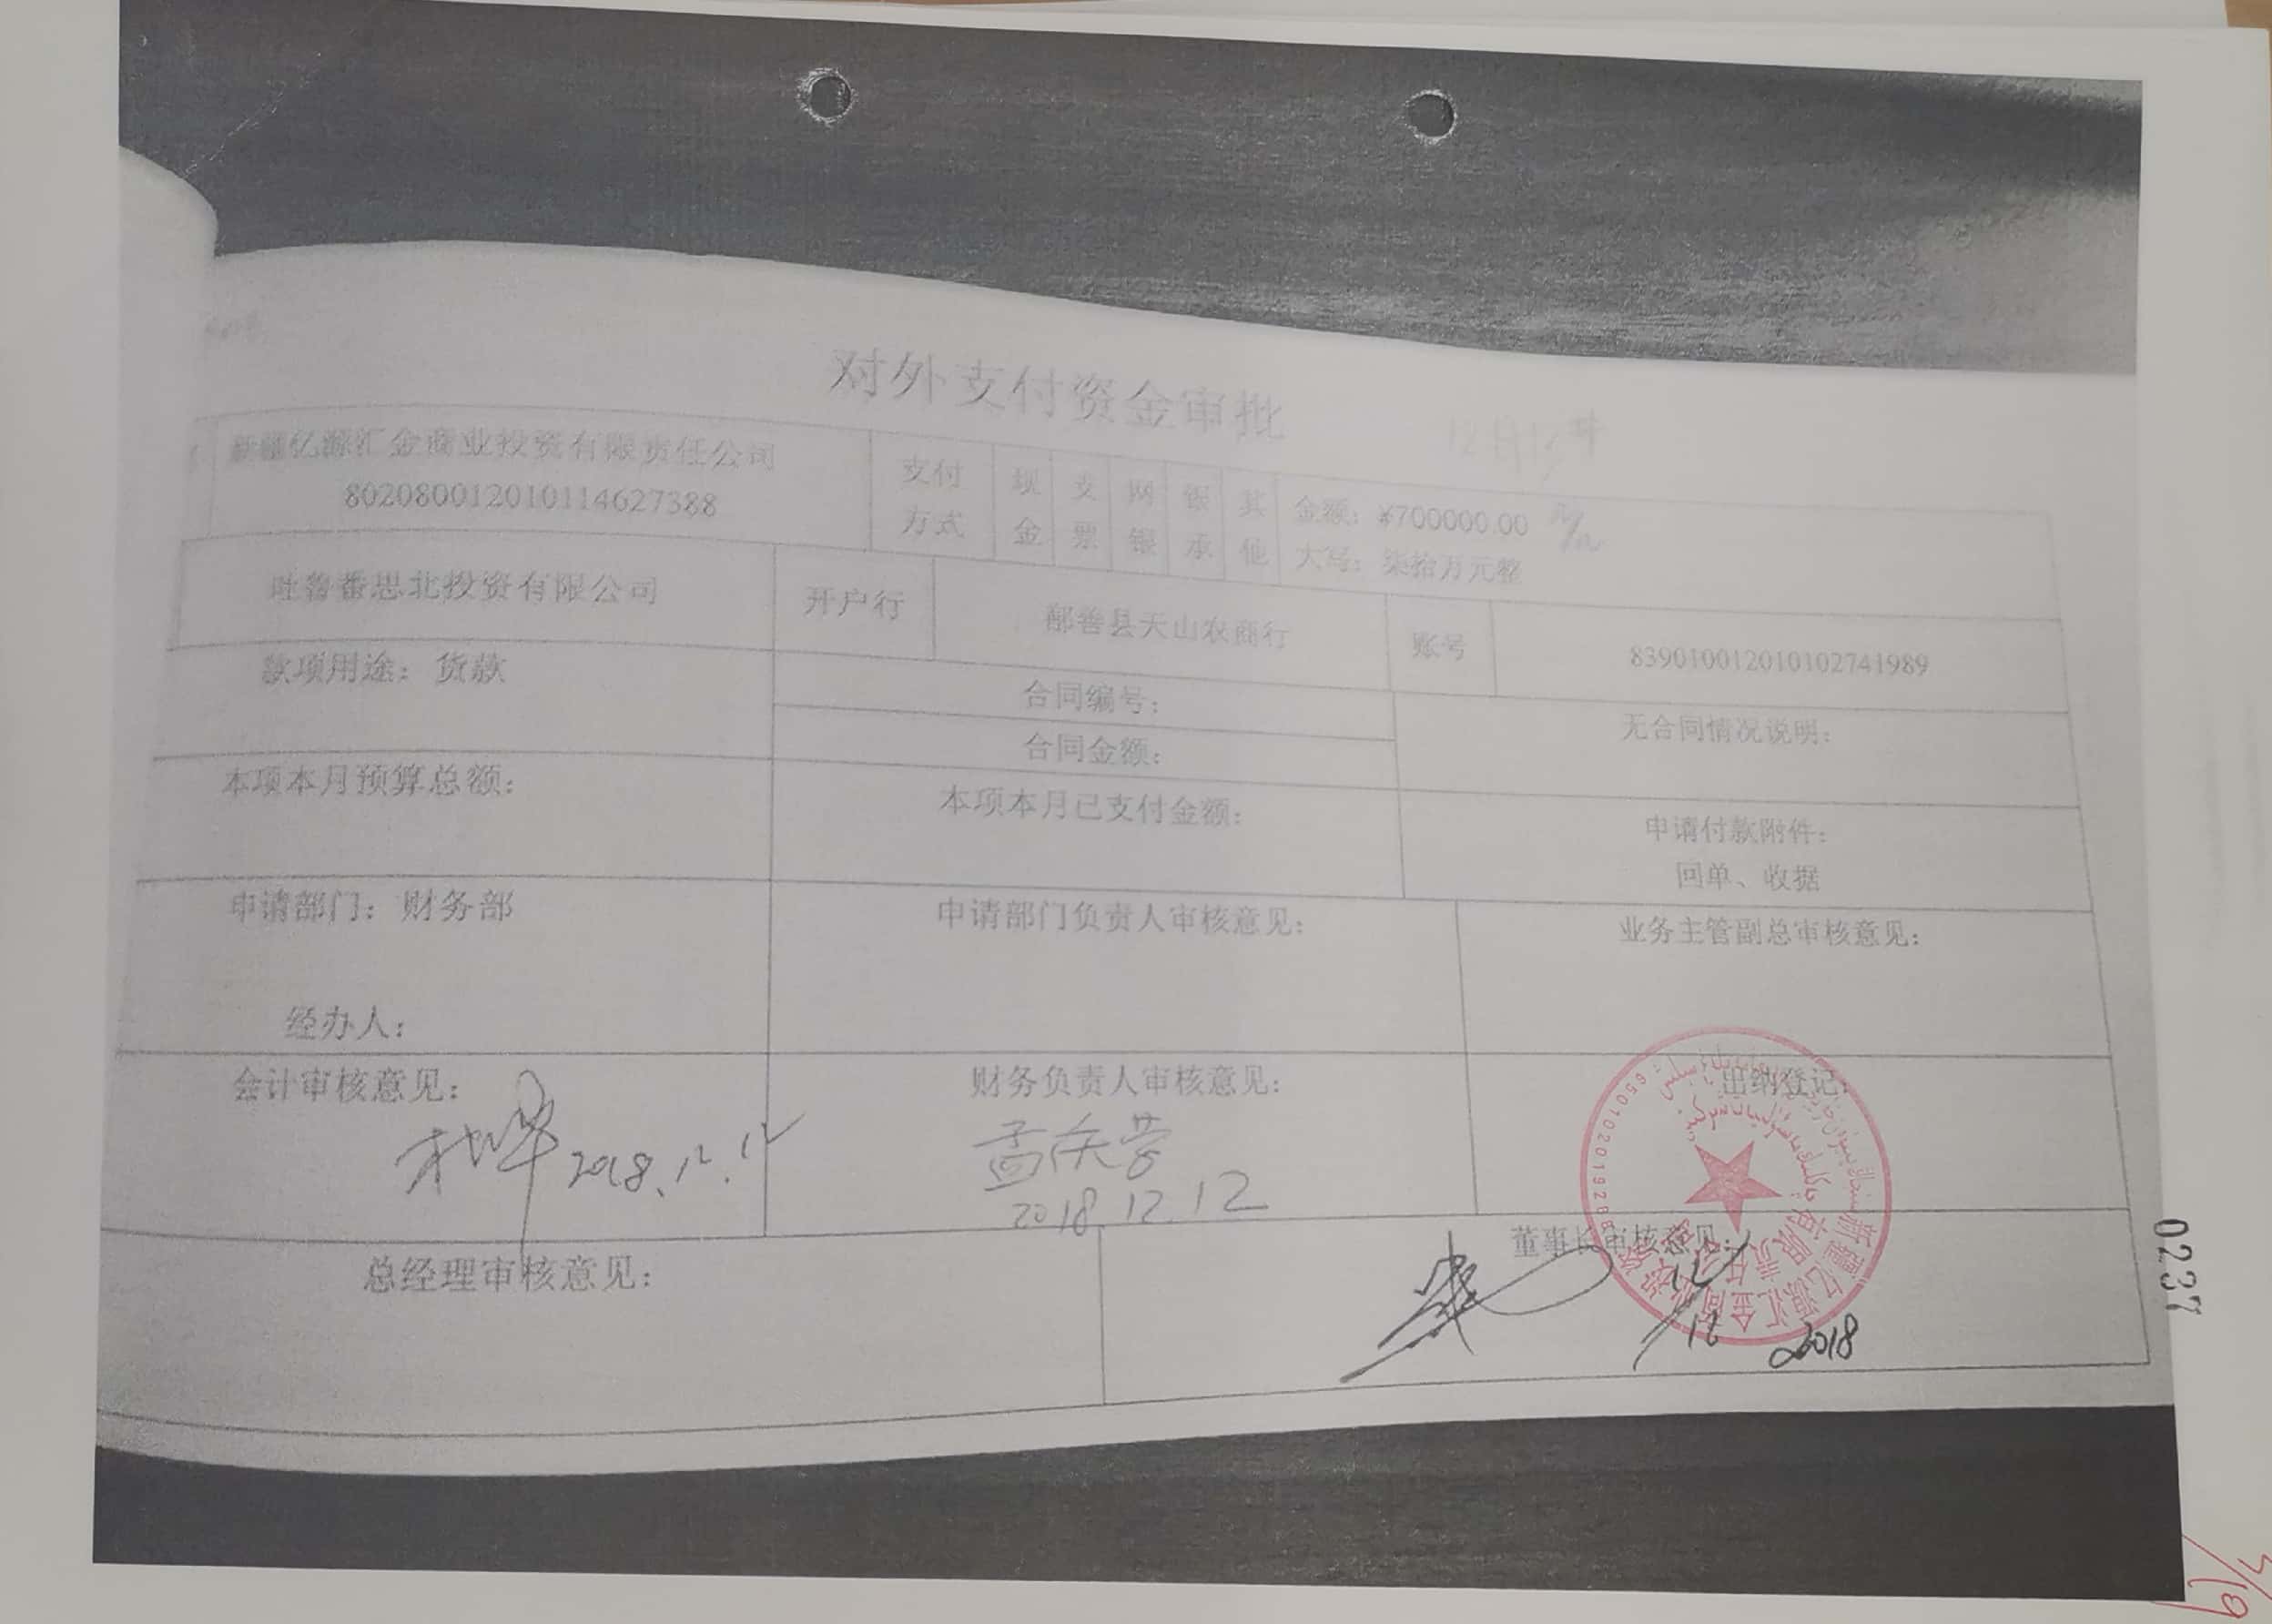 对外支付资金审批
新疆亿源汇金商业投资有限责任公司
802080012010114627388
支付方式
现金
支票
网银
银承
其他
金额：¥700000.00
大写：柒拾万元整
吐鲁番思北投资有限公司
开户行
鄯善县天山农商行
账号
839010012010102741989
款项用途：货款
合同编号：
合同金额：
无合同情况说明：
本项本月预算总额：
本项本月已支付金额：
申请付款附件：
回单、收据
申请部门：财务部
经办人：
申请部门负责人审核意见：
业务主管副总审核意见：
会计审核意见：
2018.12.12
财务负责人审核意见：
2018.12.12
出纳登记：
总经理审核意见：
董事长审核意见：
12/12 2018
新疆亿源汇金商业投资有限责任公司
0237